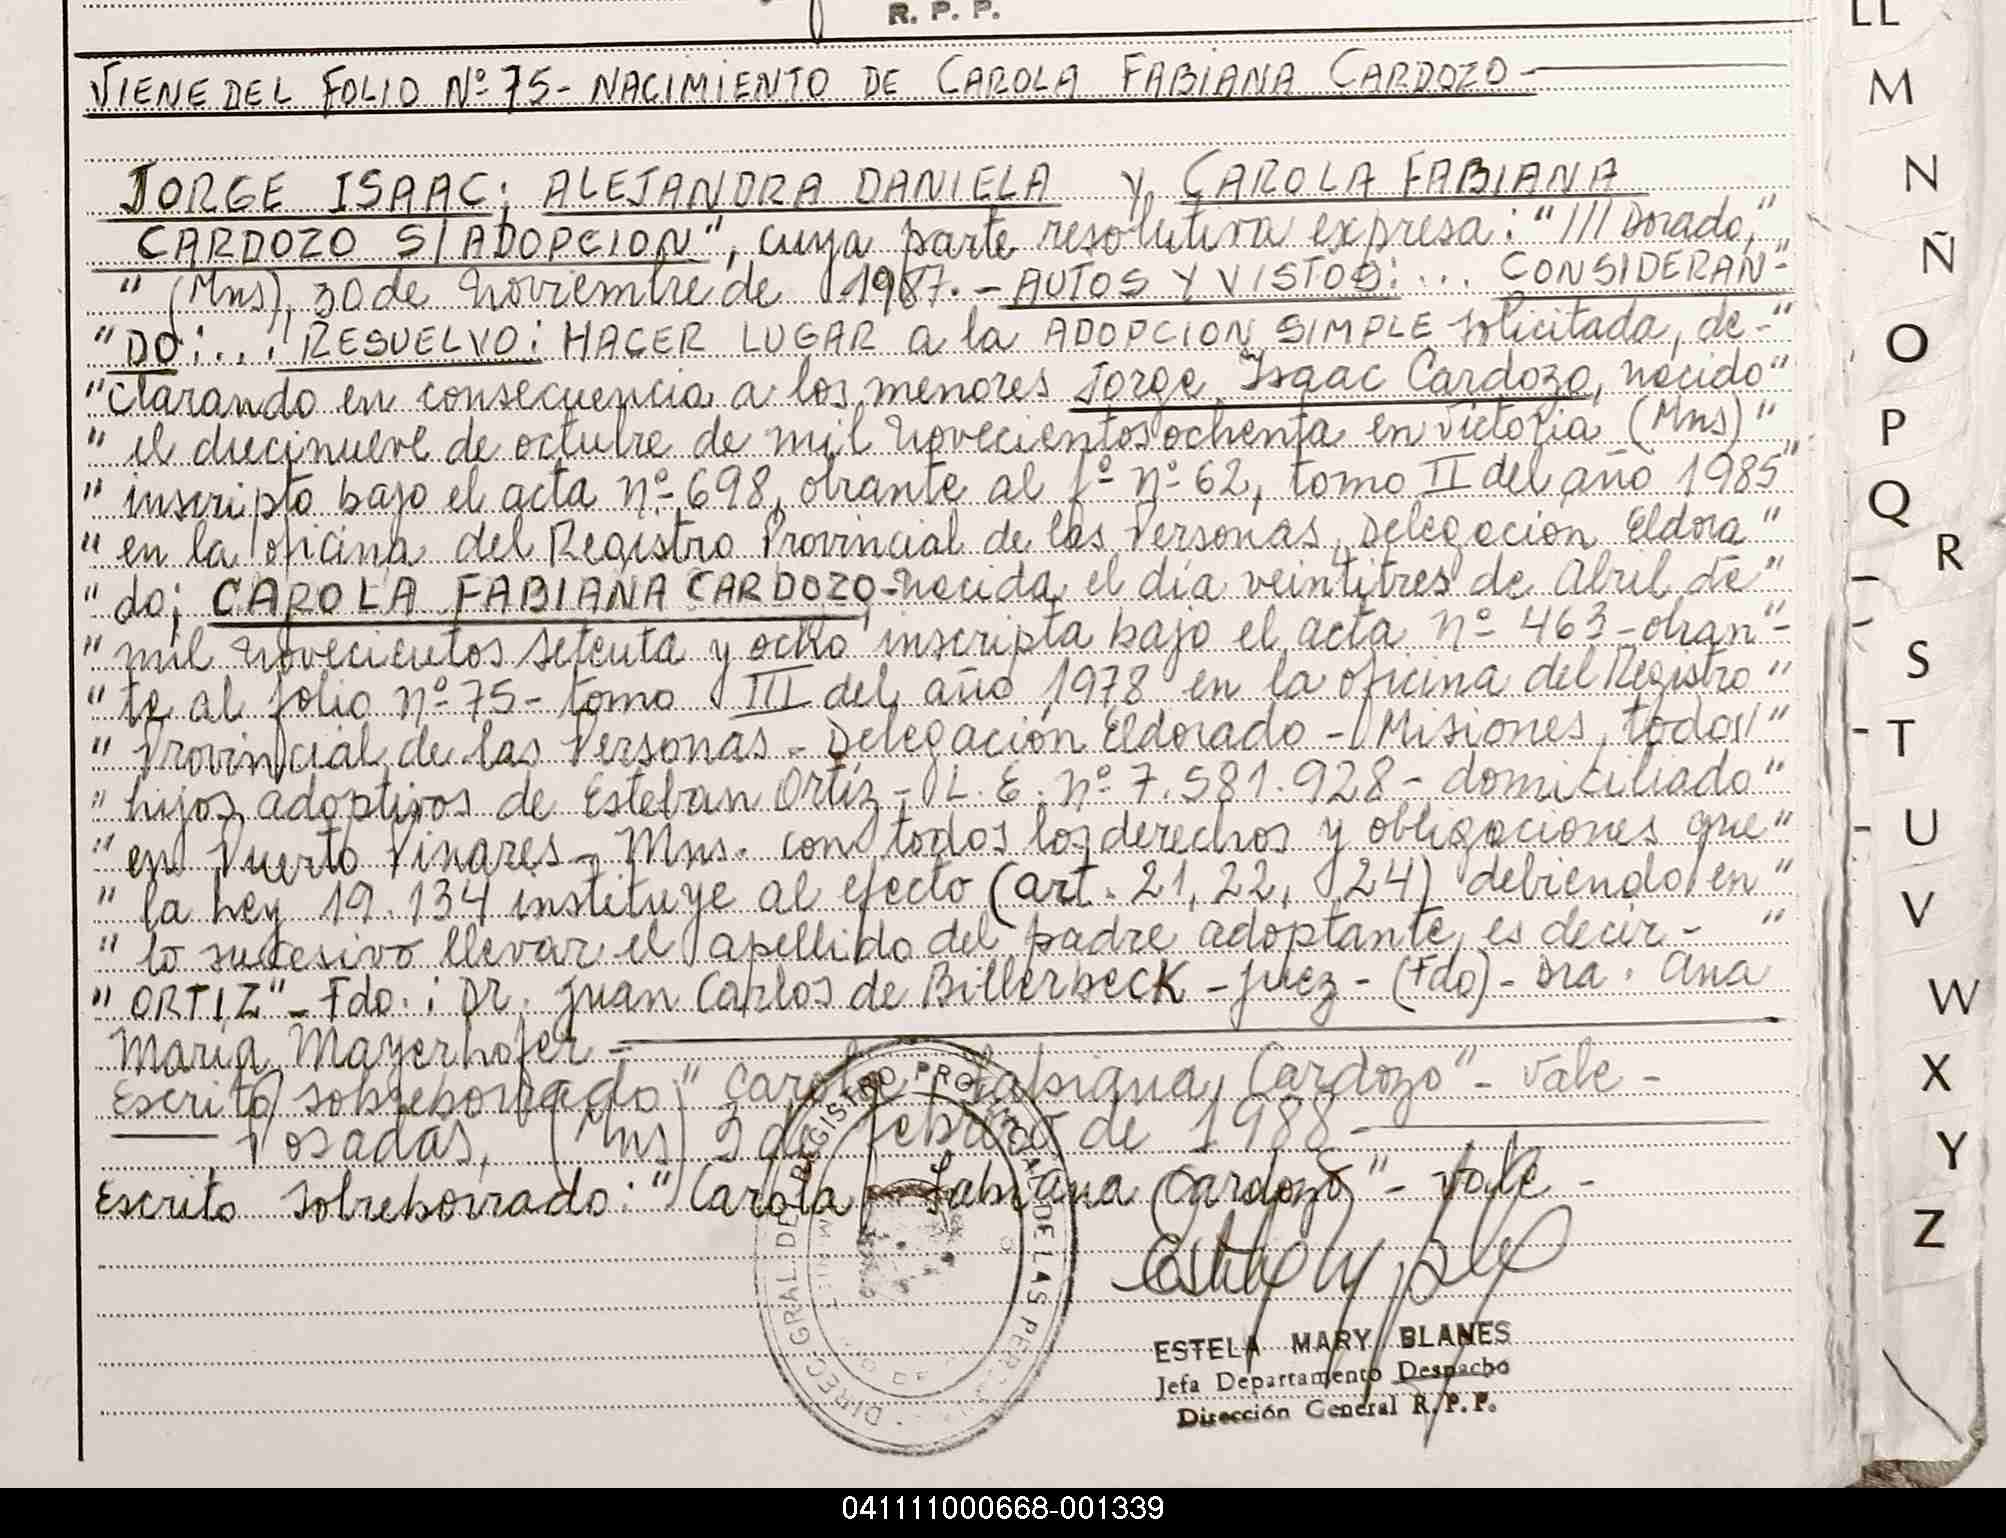 R. P. P.
VIENE DEL FOLIO Nº 75 - NACIMIENTO DE CAROLA FABIANA CARDOZO -
JORGE ISAAC; ALEJANDRA DANIELA y CAROLA FABIANA
CARDOZO S/ADOPCION", cuya parte resolutiva expresa: "///Dorado,"
" (Mns), 30 de Noviembre de 1987. - AUTOS Y VISTOS: ... CONSIDERAN-"
"DO: ... RESUELVO: HACER LUGAR a la ADOPCION SIMPLE solicitada, de-"
"clarando en consecuencia a los menores Jorge Isaac Cardozo, nacido"
" el diecinueve de octubre de mil novecientos ochenta en Victoria (Mns)"
" inscripto bajo el acta nº 698, obrante al fº nº 62, tomo II del año 1985"
" en la oficina del Registro Provincial de las Personas, Delegacion Eldora"
" do; CAROLA FABIANA CARDOZO - nacida el día veintitres de Abril de"
" mil novecientos setenta y ocho inscripta bajo el acta nº 463 - obran"-
" te al folio nº 75 - tomo III del año 1978 en la oficina del Registro"
" Provincial de las Personas - Delegación Eldorado - Misiones, todos"
" hijos adoptivos de Esteban Ortíz - L. E. nº 7.581.928 - domiciliado"
" en Puerto Pinares - Mns. con todos los derechos y obligaciones que"
" la Ley 19.134 instituye al efecto (art. 21, 22, 24) debiendo en"
" lo sucesivo llevar el apellido del padre adoptante, es decir - "
" ORTIZ" - Fdo.: Dr. Juan Carlos de Billerbeck - Juez - (Fdo) - Dra. Ana
María Mayerhofer -
Escrito sobreborrado "Carola Fabiana Cardozo" - Vale -
Posadas, (Mns) 2 de febrero de 1988
Escrito sobreborrado: "Carola Fabiana Cardozo" - Vale -
DIREC. GRAL. DEL REGISTRO PROVINCIAL DE LAS
ESTELA MARY BLANES
Jefa Departamento Despacho
Dirección General R. P. P.
LL
M
N
Ñ
O
P
Q
R
S
T
U
V
W
X
Y
Z
041111000668-001339